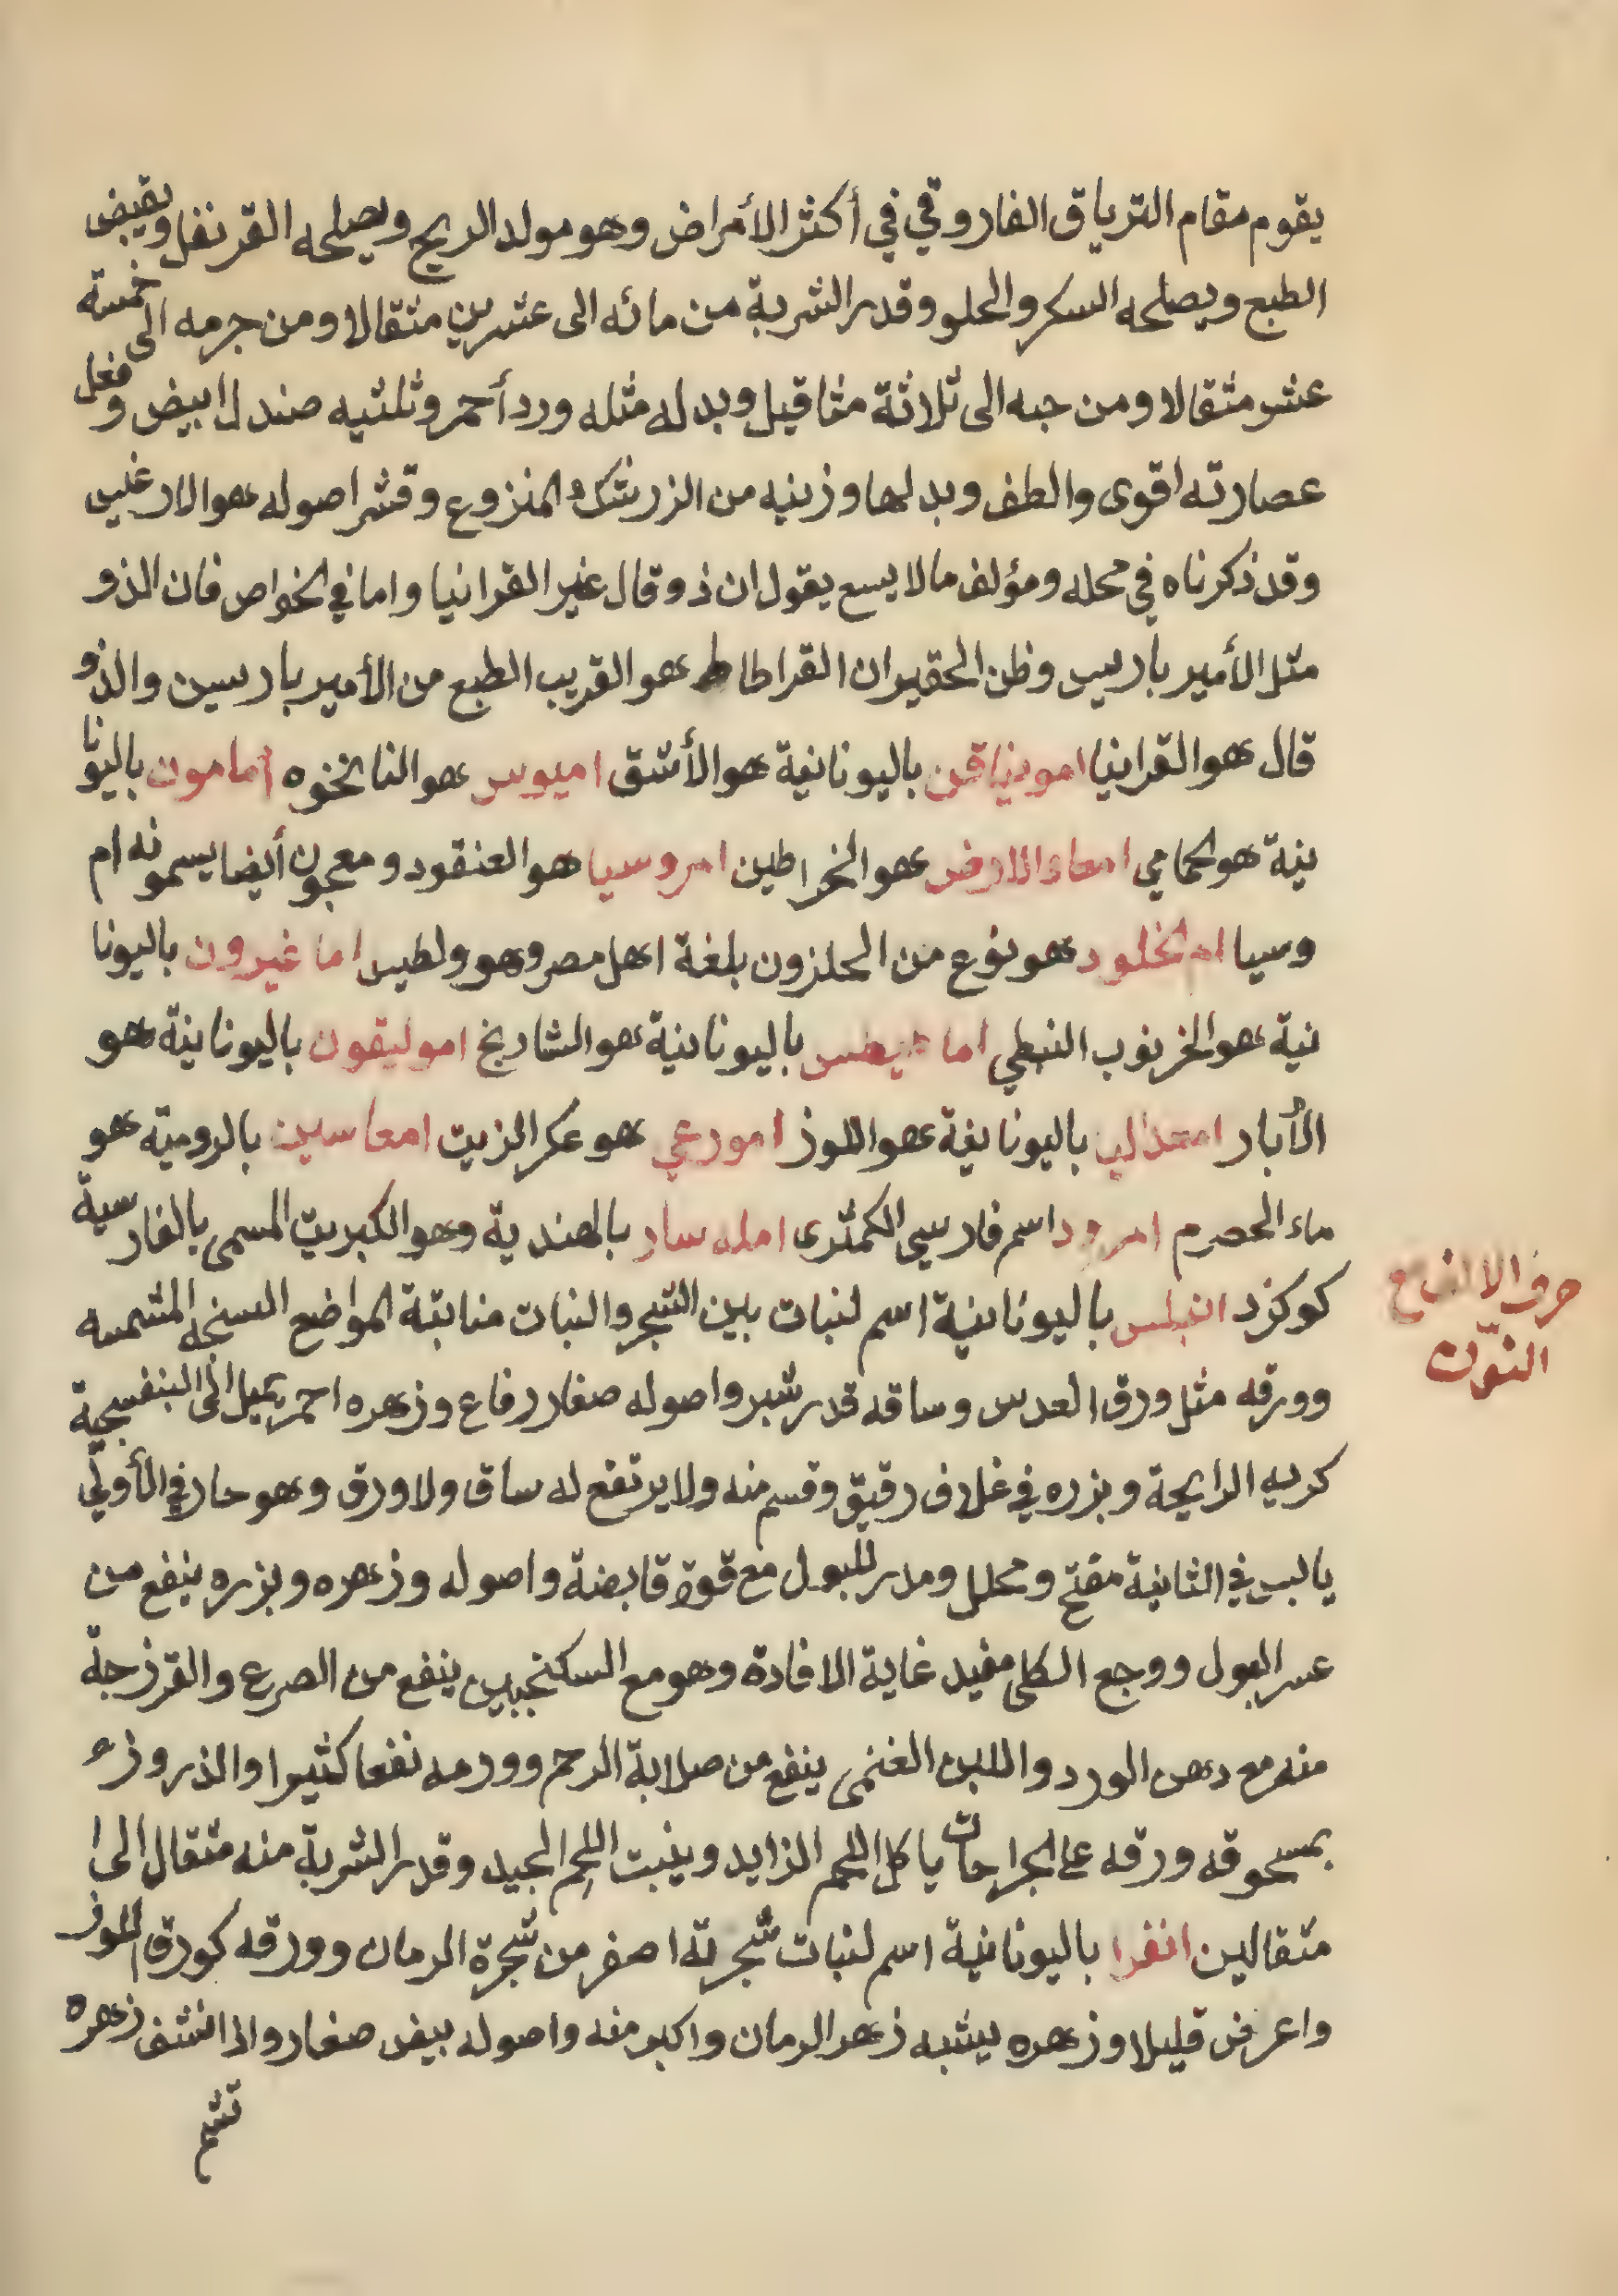 يقوم مقام الترياق الفاروقي في أكثر الأمراض وهو مولد الريح ويصلحه القرنفل ويقبض
الطبع ويصلحه السكر والحلو وقدر الشربة من مائه الى عشرين مثقالا ومن جرمه الى خمسة
عشر مثقالا ومن حبه الى ثلاثة مثاقيل وبدله مثله ورد أحمر وثلثيه صندل ابيض وفعل
عصارته اقوى والطف وبدلها وزنيه من الزرشك المنزوع وقشر اصوله هو الارغيس
وقد ذكرناه في محله ومؤلف مالا يسع يقول ان ذوقال غير القرانيا واما في الخواص فان الذو
مثل الأمير باريس وظن الحقير ان القراطاط هو القريب الطبع من الأمير بارسين والذو
قال هو القرانيا امونياقن باليونانية هو الأشق اميوس هو النانخوه امامون باليونا
نية هو الحمامي امعاء الارض هو الخراطين امروسيا هو العنقود ومعجون أيضا يسمونه ام
وسيا ام الخلود هو نوع من الحلزون بلغة اهل مصر وهو ولطيس اما غيرون باليونا
نية هو الخرنوب النبطي باليونانية هو الشادنج اموليقون باليونانية هو
الأبار باليونانية هو اللوز امورعي هو عكر الزيت امعاسين بالرومية هو
ماء الحصرم امرود اسم فارسي الكمثرى امله سار بالهندية وهو الكبريت المسمى بالفارسية
كوكزد باليونانية اسم لنبات بين الشجر والنبات منابتة المواضع السنجه المشمسه
وورقه مثل ورق العدس وساقه قدر شبر واصوله صغار رفاع وزهره احمر يميل الى البنفسجية
كريه الرايحة وبزره في غلاف رقيق وقسم منه ولا يرتفع له ساق ولا ورق وهو حار في الأولى
يابس في الثانية مفتح ومحلل ومدر للبول مع قوة قابضة واصوله وزهره وبزره ينفع من
عسر البول ووجع الكلى مفيد غاية الافادة وهو مع السكنجبين ينفع من الصرع والقرزجة
منه مع دهن الورد واللبن الغنمى ينفع من صلابة الرحم وورمه نفعا كثيرا والذروزء
بمسحوقه ورقه على الجراحات ياكل اللحم الزايد وينبت اللحم الجيد وقدر الشربة منه مثقال الى
مثقالين انغرا باليونانية اسم لنبات شجرته اصغر من شجرة الرمان وورقه كورق اللوز
واعرض قليلا وزهره يشبه زهر الرمان واكبر منه واصوله بيض صغار واذا انشف زهره
تشم
حرف الالف مع
النون